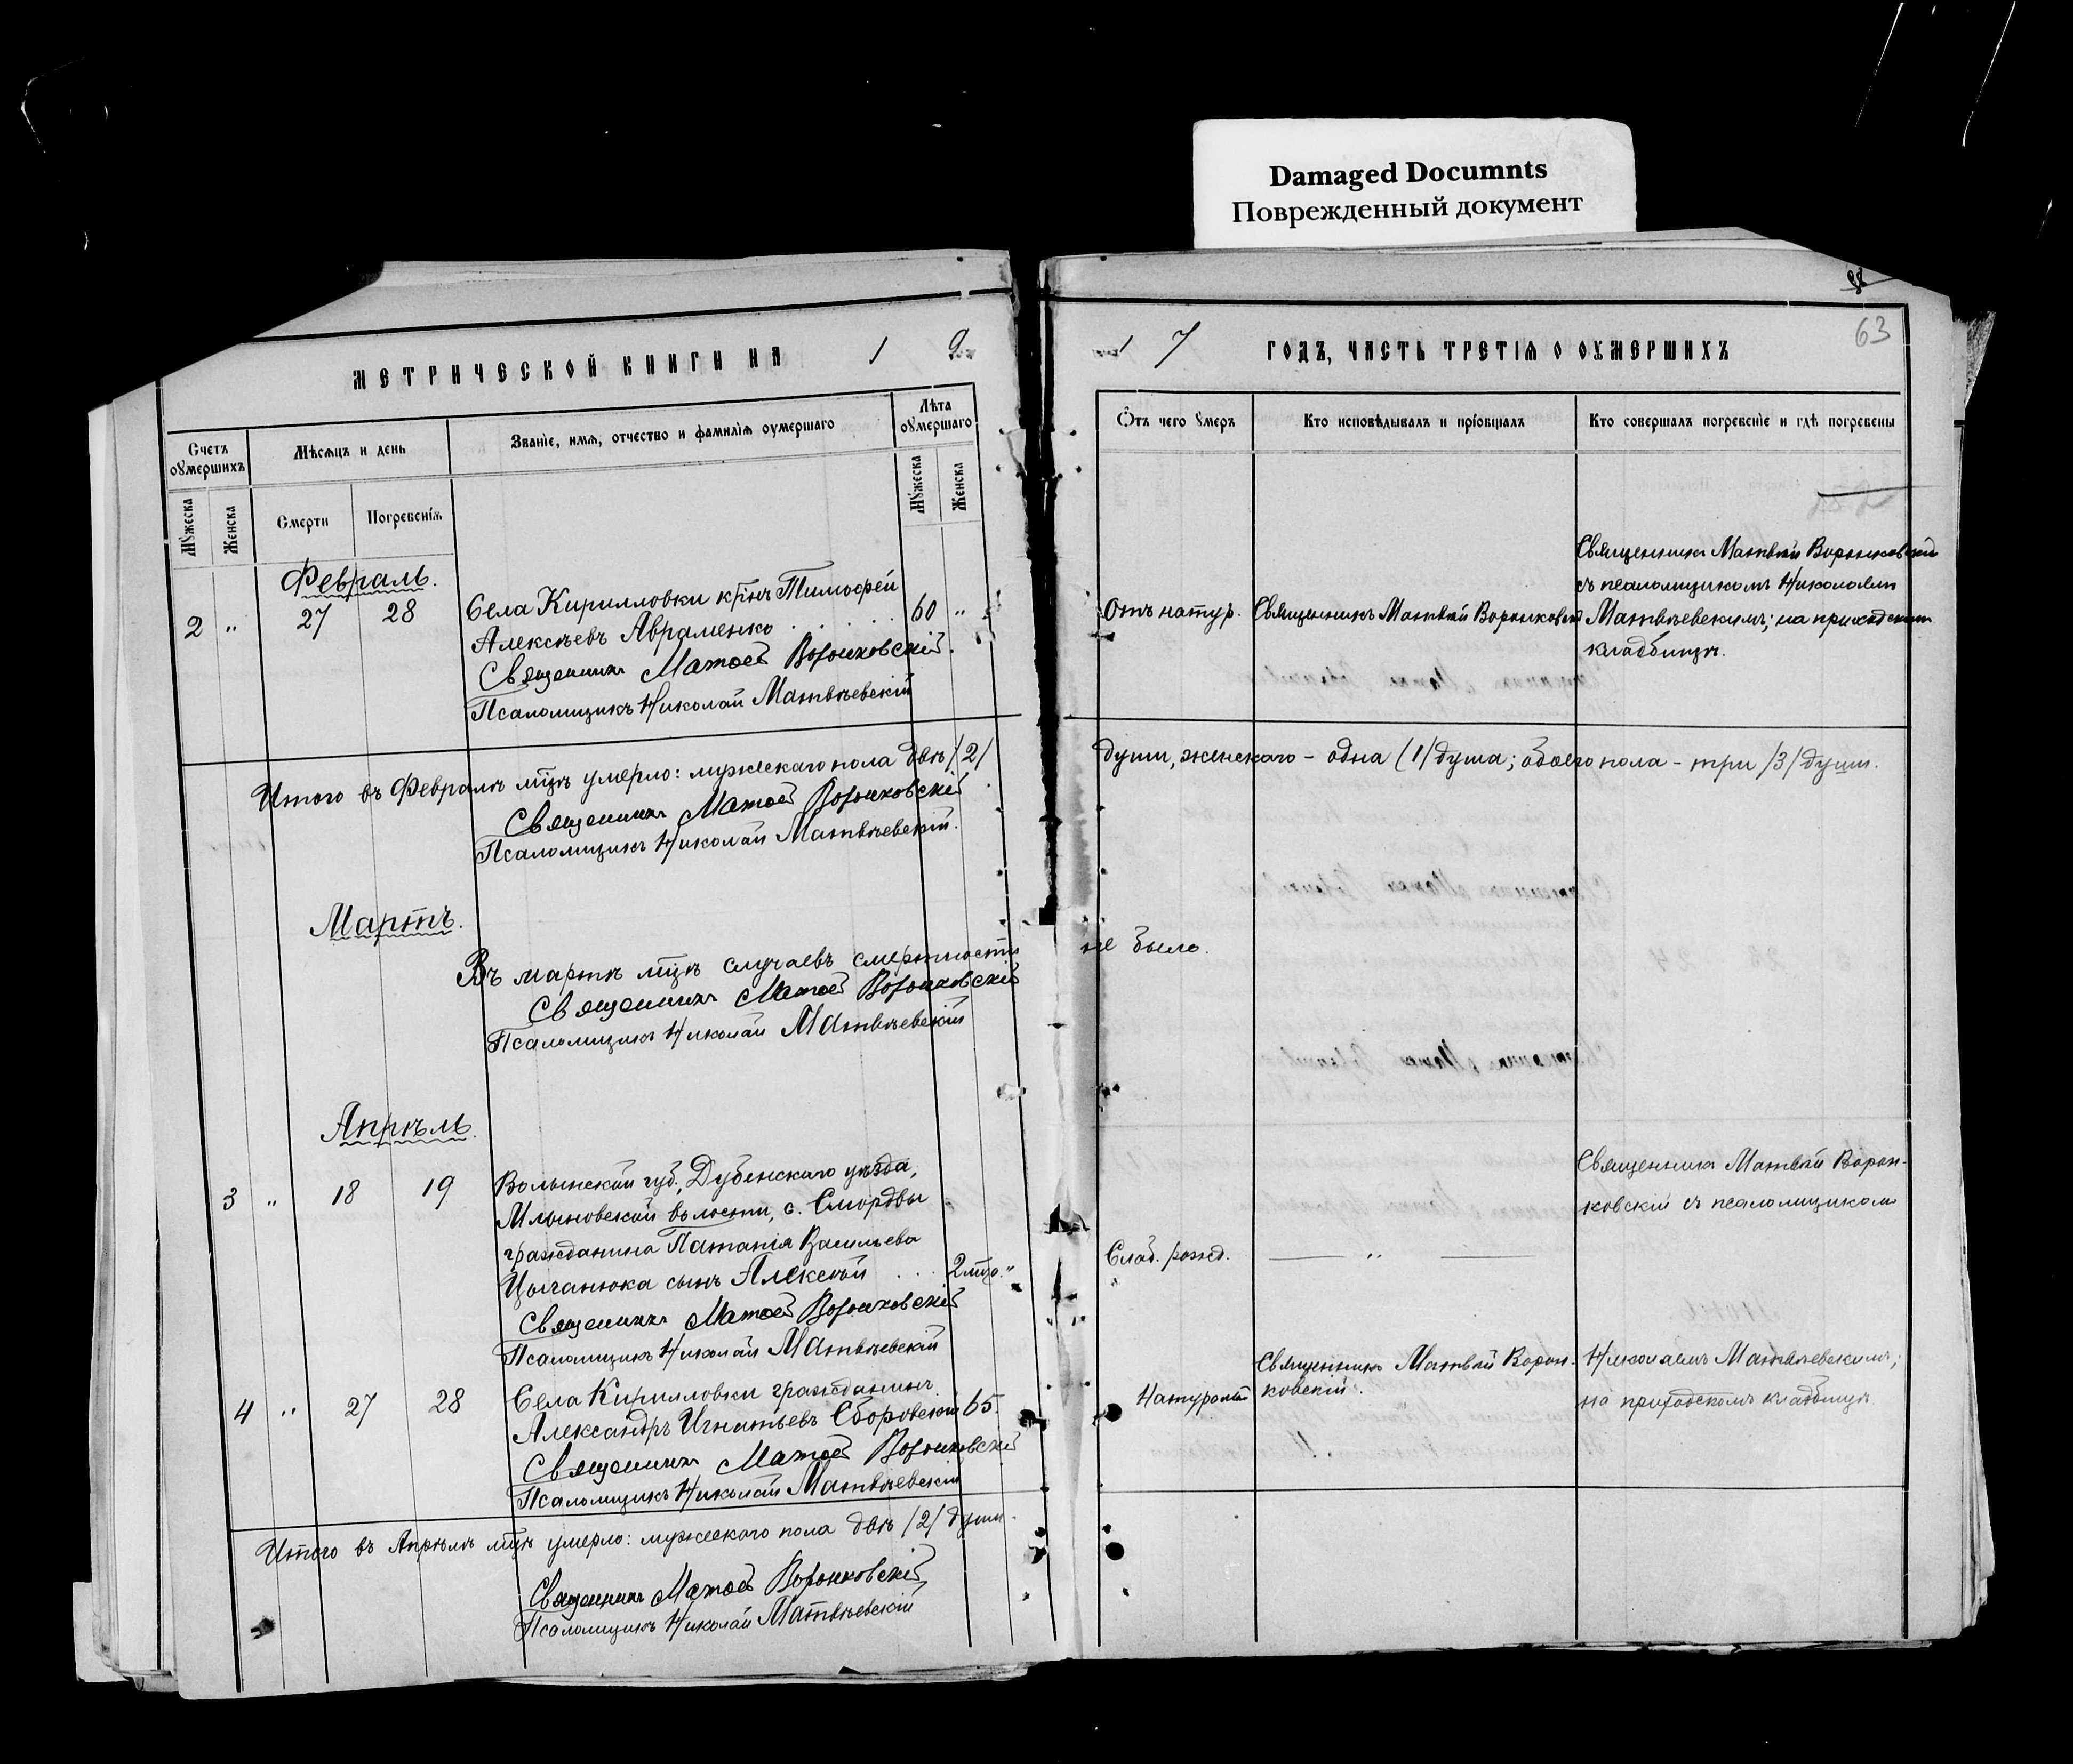 Damaged Documnts
Поврежденный документ
МЕТРИЧЕСКОЙ КНИГИ НА 1 9
Счетъ оумершихъ
Мѣсяцъ и день
Званіе, имя, отчество и фамилія оумершаго
Лѣта оумершаго
Мужеска
Женска
Смерти
Погребенія
Мужеска
Женска
Февраль.
2 " 27 28 Села Кирилловки кр̃нъ Тимофей 60 "
Алексѣевъ Авраменко . . . . . .
Священникъ Матвей Воронковскій.
Псаломщикъ Николай Матвѣевскій
Итого въ Февралѣ мц̃ѣ умерло: мужескаго пола двѣ /2/
Священникъ Матвей Воронковскій.
Псаломщикъ Николай Матвѣевскій.
Мартъ.
Въ мартѣ мц̃ѣ случаевъ смертности
Священникъ Матвей Воронковскій
Псаломщикъ Николай Матвѣевскій
Апрѣль.
3 " 18 19 Волынской губ., Дубенскаго уѣзда,
Млыновской волости, с. Смордвы
гражданина Патапія Васильева
Цыганюка сынъ Алексѣй . . . 2 мц̃а. "
Священникъ Матвей Воронковскій
Псаломщикъ Николай Матвѣевскій
4 " 27 28 Села Кирилловки гражданинъ
Александръ Игнатьевъ Сборовскій 65.
Священникъ Матвей Воронковскій
Псаломщикъ Николай Матвѣевскій
Итого въ Апрѣлѣ мц̃ѣ умерло: мужескаго пола двѣ /2/ души.
Священникъ Матвей Воронковскій
Псаломщикъ Николай Матвѣевскій
63
1 7 ГОДЪ, ЧАСТЬ ТРЕТІЯ О ОУМЕРШИХЪ
Ѿтъ чего умеръ
Кто исповѣдывалъ и пріобщалъ
Кто совершалъ погребеніе и гдѣ погребены
Священникъ Матвѣй Воронковскій
съ псаломщикомъ Николаемъ
Отъ натур. Священникъ Матвѣй Воронковскій Матвѣевскимъ; на приходскомъ
кладбищѣ.
души, женскаго – одна (1/ душа; обоего пола – три /3/ души.
не было.
Священникъ Матвѣй Ворон-
ковскій съ псаломщикомъ
Слаб. рожд. — " —
Священникъ Матвѣй Ворон- Николаемъ Матвѣевскимъ;
Натуральн. ковскій. на приходскомъ кладбищѣ.